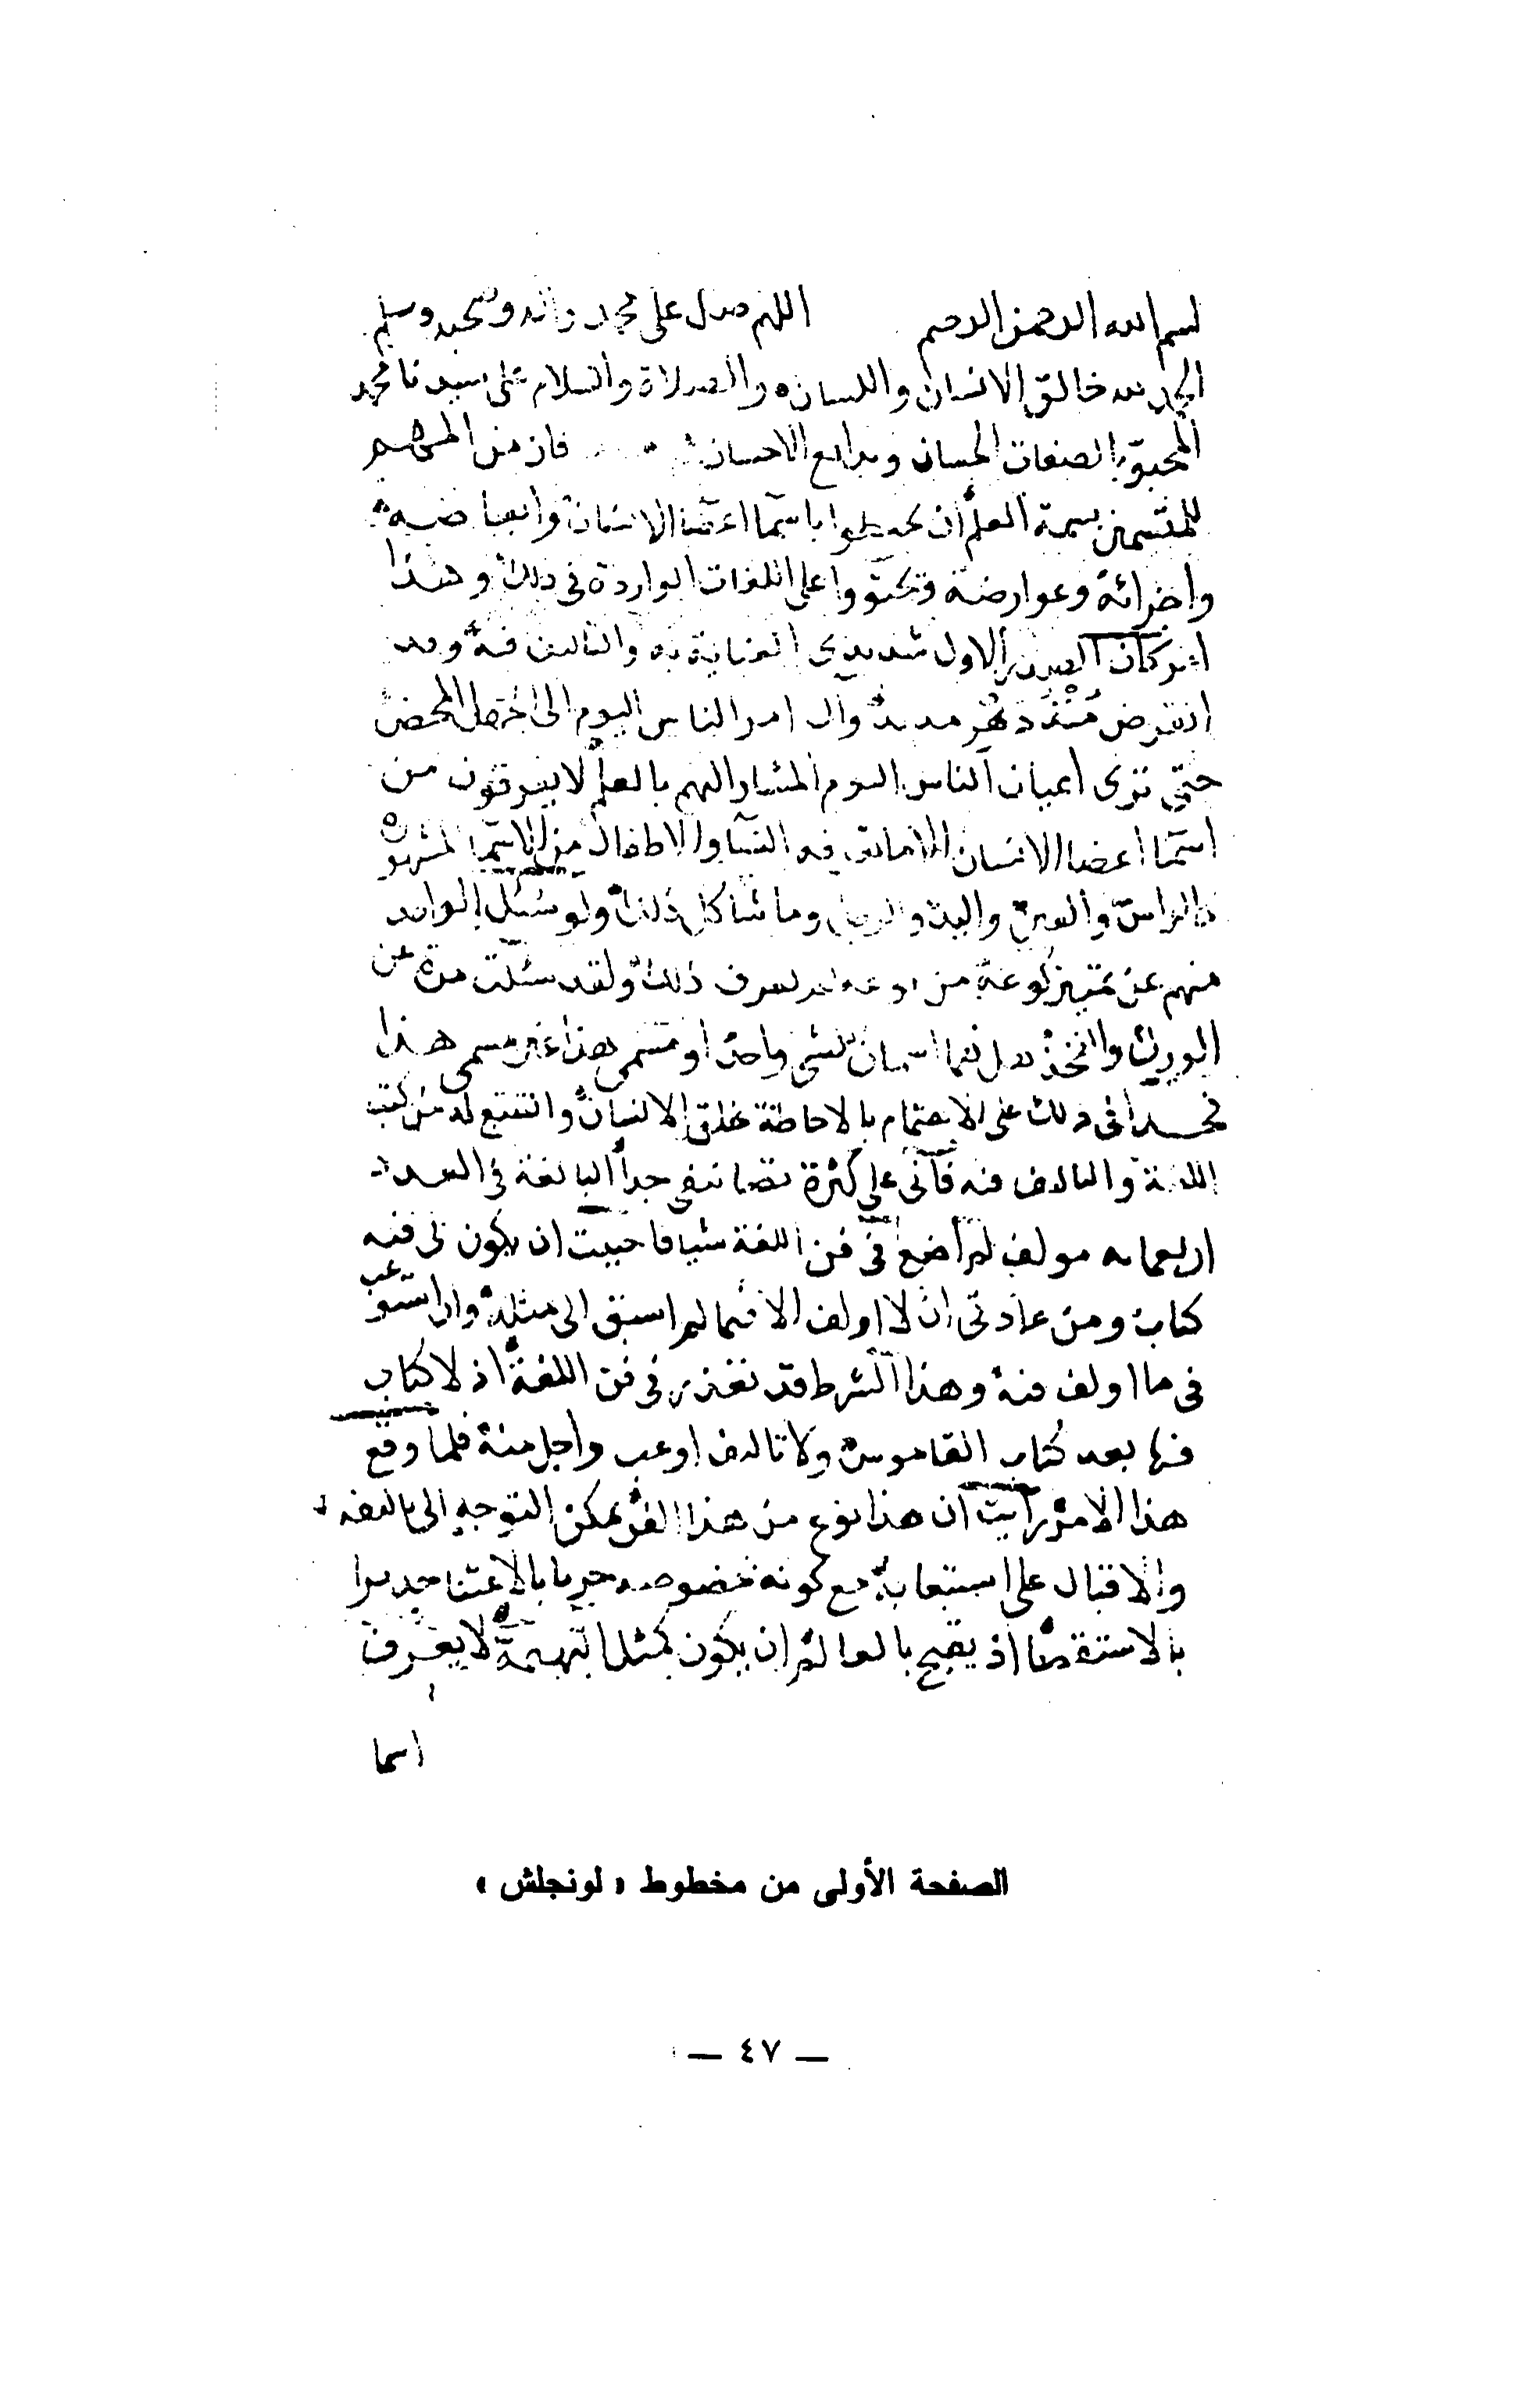 بسم الله الرحمن الرحيم اللهم صل على محمد واله وصحبه وسلم
الحمد لله خالق الانسان واللسان والصلاة والسلام على سيدنا محمد
المحبو بالصفات الحسان وبدائع الاحسان فان من المهم
للمتسمين بسمة العلم ان يحيطوا باسما اعضا الانسان وابعاضه
واجزائه وعوارضه ويحتووا على اللغات الواردة في ذلك وهذا
كان الصدر الاول شديدي العناية به والتاليف فيه وقد
انقرض منذ دهر مديد وآل امر الناس اليوم الى الجهل المحض
حتى ترى اعيان الناس اليوم المشار اليهم بالعلم لا يعرفون من
اسما اعضا الانسان الا ما فيه النسا والاطفال من الاسما المشهورة
كالراس والعين واليد والرجل وما شاكل ذلك ولو سئل الواحد
منهم عن تمييز كوعه من لم يعرف ذلك ولقد سئلت مرة عن
الورك والفخذ هل هما اسمان لشي واحد او مسمى هذا غير مسمى هذا
فحداني ذلك على الاهتمام بالاحاطة بخلق الانسان والتتبع له من كتب
اللغة والتاليف فيه فاني على كثرة تصانيفي جدا البالغة في العدد
اربعمايه مولف لم اضع في فن اللغة شيا فاحببت ان يكون لي فيه
كتاب ومن عادتي ان لا اولف الا فيما لم اسبق الى مثله وان استوعب
في ما اولف فيه وهذا الشرط قد تعذر في فن اللغة اذ لا كتاب
فيها بعد كتاب القاموس ولا تاليف اوعب واجل منه فلما وقع
هذا الامر رايت ان هذا نوع من هذا الفن يمكن التوجه الى تاليفه
والاقبال على استيعابه مع كونه بخصوصه حريا بالاعتنا جديرا
بالاستقصا اذ يقبح بالعالم ان يكون كمثل البهيمة لا يعرف
اسما
الصفحة الأولى من مخطوط « لونجلش »
— ٤٧ —